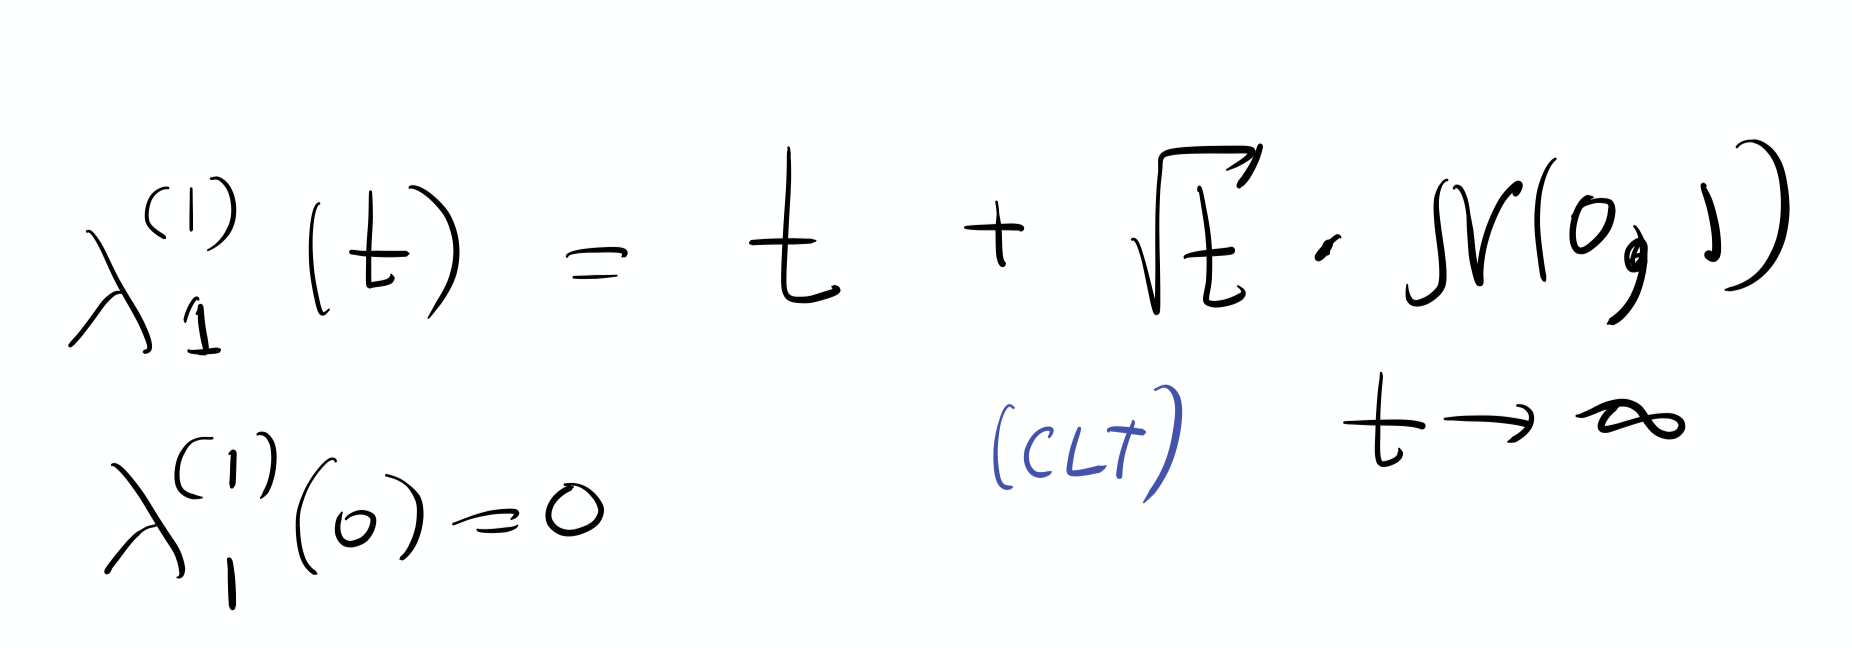 λ₁⁽¹⁾(t) = t + √t · 𝒩(0, 1)
(CLT) t → ∞
λ₁⁽¹⁾(0) = 0